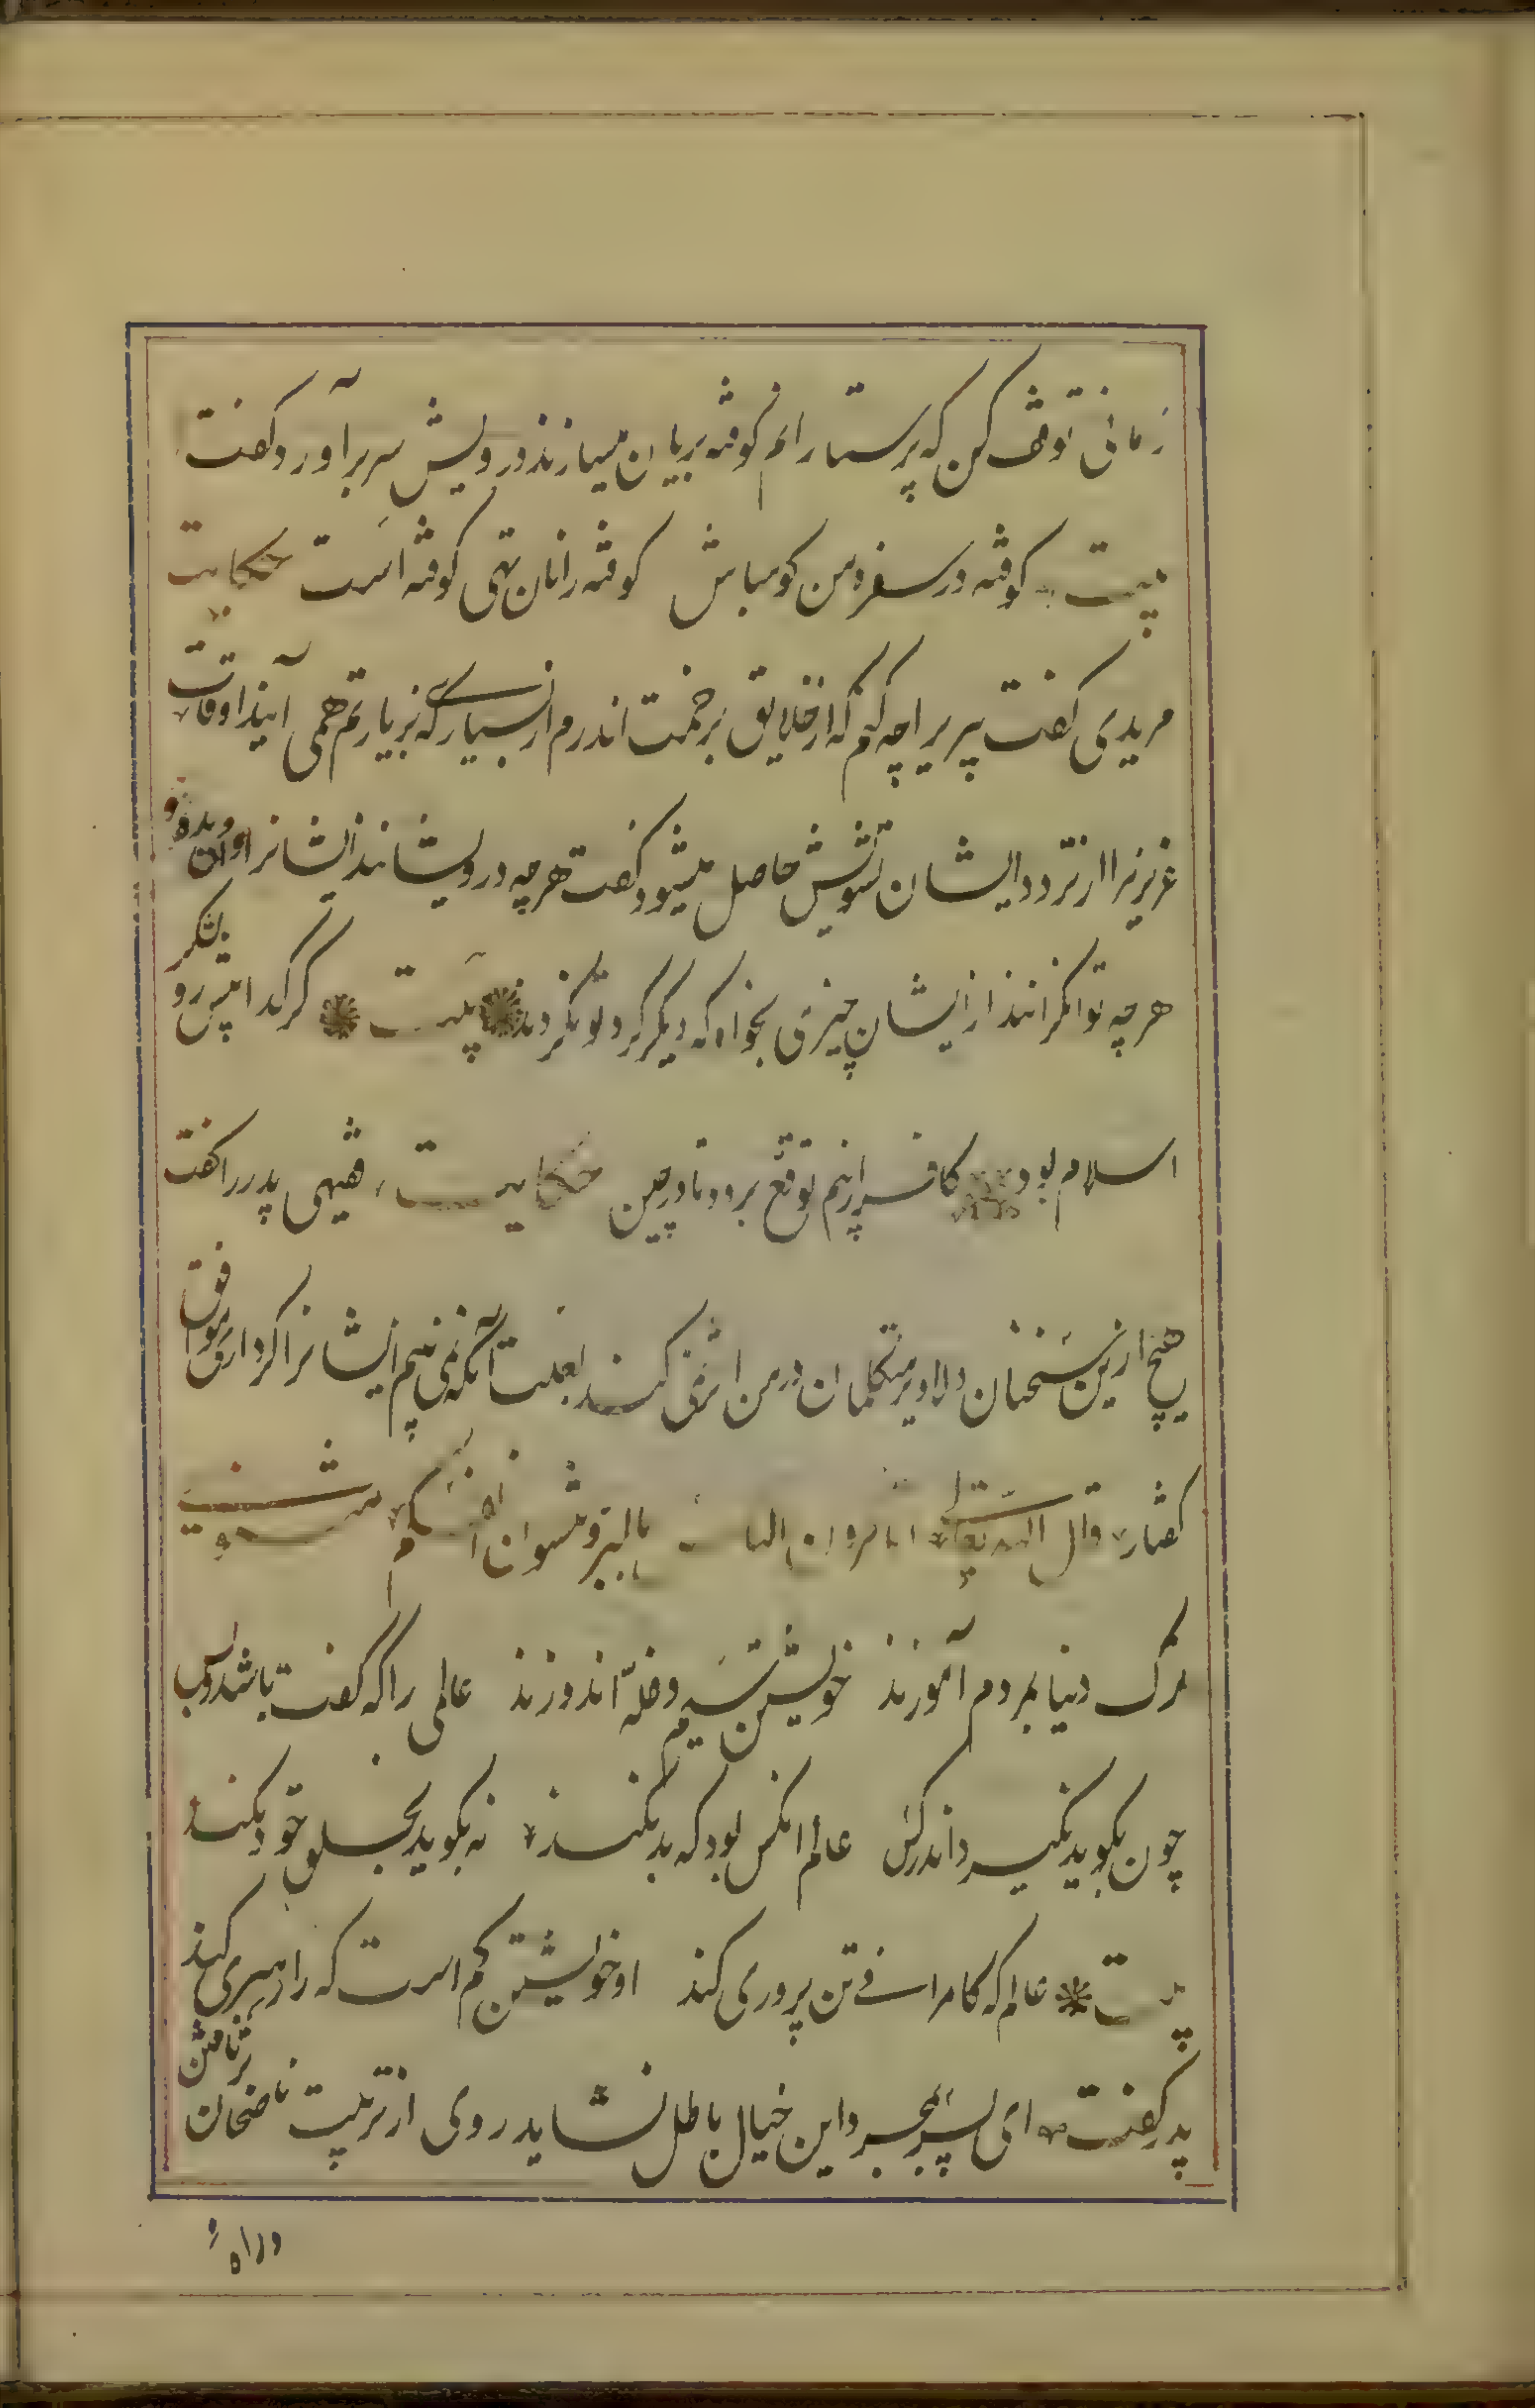 زمانی توقف کن که پرستارانم کوفته بریان میسازند درویش سر برآورد و گفت
بیت کوفته در سفره من کو مباش کوفته را نان تهی کوفته است حکایت
مریدی گفت پیر را چه کنم که از خلایق بزحمت اندرم از بسیاری که بزیارتم همی آیند و اوقات
عزیز مرا از تردد ایشان تشویش حاصل میشود گفت هرچه درویشانند ایشانرا وامی بده و
هرچه توانگرانند از ایشان چیزی بخواه که دیگر گرد تو نگردند بیت گر گدا پیش رو لشکر
اسلام بود کافر از بیم توقع برود تا در چین حکایت فقیهی پدر را گفت
هیچ ازین سخنان دلاویز متکلمان در من اثر نمی کند بعلت آنکه نمی بینم ایشانرا کرداری موافق
گفتار قال الله تعالی اتامرون الناس بالبر و تنسون انفسکم مثنوی
ترک دنیا بمردم آموزند خویشتن سیم و غله اندوزند عالمی را که گفت باشد و بس
چون بگوید نگیرد اندر کس عالم انکس بود که بد نکند نه بگوید بخلق و خود نکند
بیت عالم که کامرانی و تن پروری کند او خویشتن گم است کرا رهبری کند
پدر گفت ای پسر بمجرد این خیال باطل نشاید روی از تربیت ناصحان برتافتن
و راه